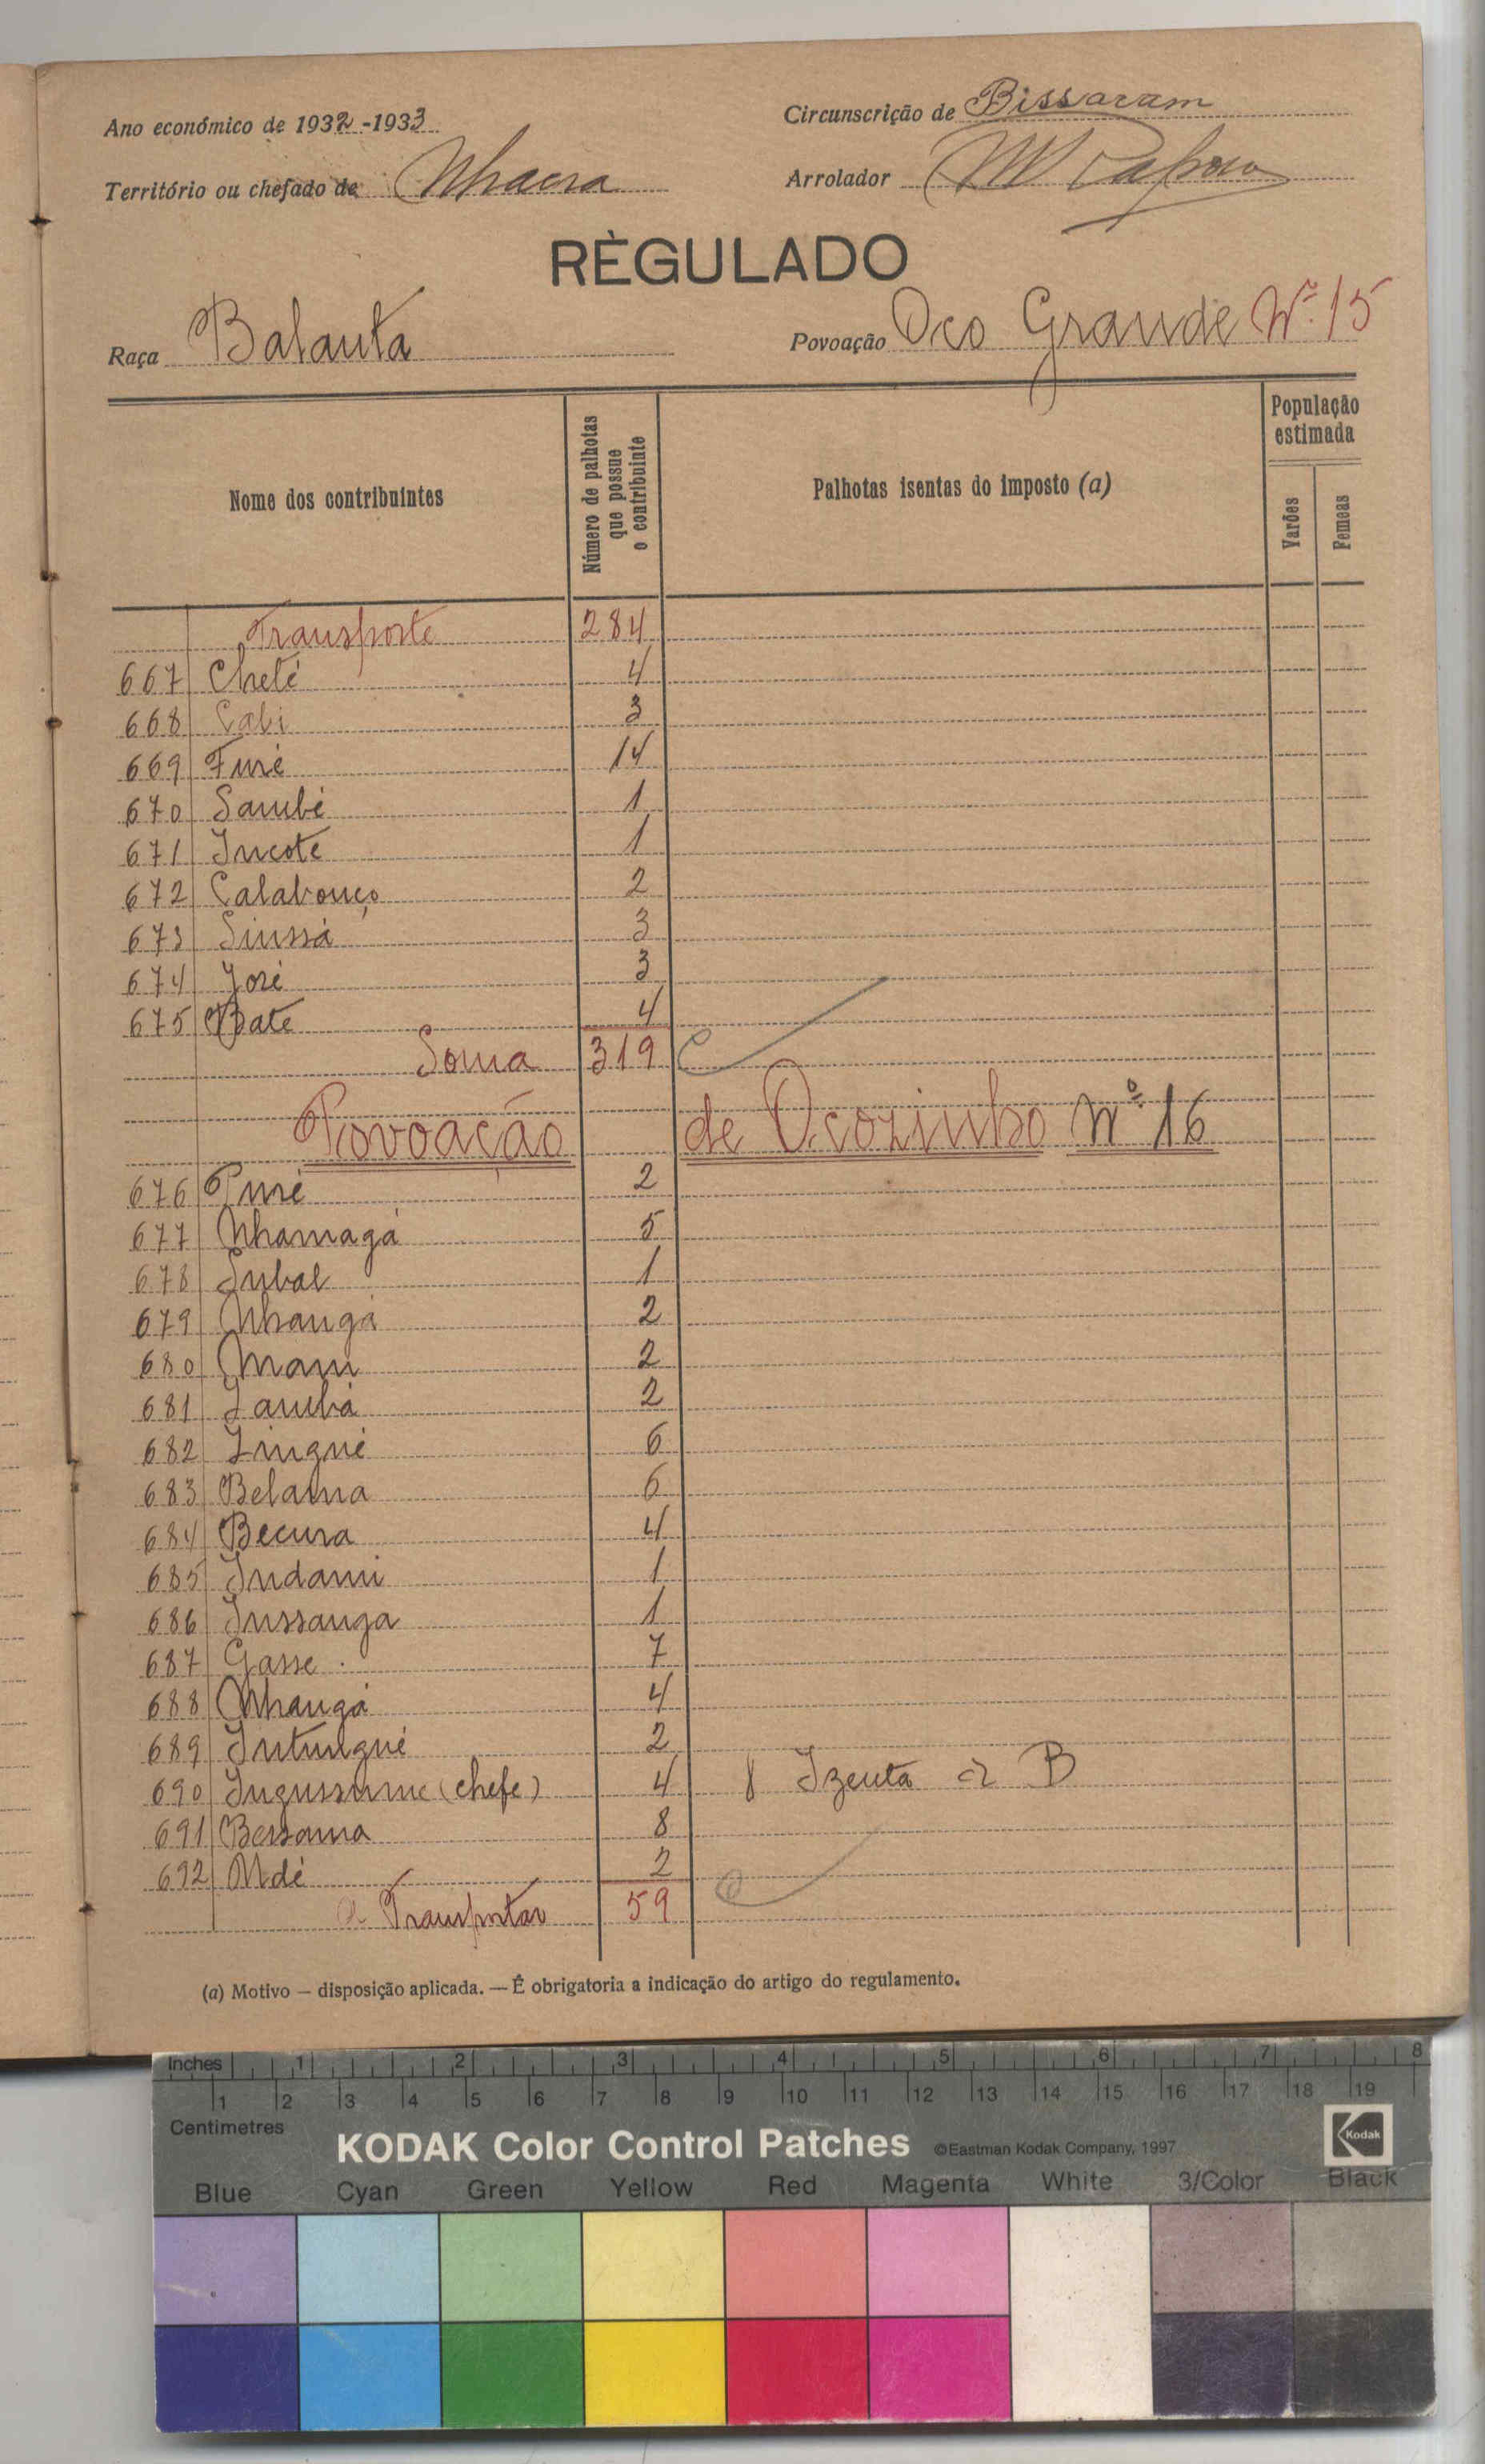 Ano económico de 1932-1933
Circunscrição de Bissaram
Território ou chefado de Nhacra
Arrolador
RÈGULADO
Raça Balanta
Povoação Oco Grande Nº 15
Nome dos contribuintes
Número de palhotas que possue o contribuinte
Palhotas isentas do imposto (a)
População estimada
Varões
Femeas
Transporte 284
667 Cheté 4
668 Cabi 3
669 Funé 14
670 Sambé 1
671 Incote 1
672 Calabouço 2
673 Sinssá 3
674 José 3
675 Bate 4
Soma 319
Povoação de Ocozinho Nº 16
676 2
677 Nhamagá 5
678 Subal 1
679 Nhanga 2
680 Mam 2
681 Lambá 2
682 Lingué 6
683 Belama 6
684 Becura 4
685 Indami 1
686 Inssanga 1
687 Gasse 7
688 Nhangá 4
689 Intungué 2
690 (chefe) 4 Izenta B
691 Bessama 8
692 Ndé 2
a Transportar 59
(a) Motivo — disposição aplicada. — É obrigatoria a indicação do artigo do regulamento.
Inches 1 2 3 4 5 6 7 8
1 2 3 4 5 6 7 8 9 10 11 12 13 14 15 16 17 18 19
Centimetres
KODAK Color Control Patches ©Eastman Kodak Company, 1997 Kodak
Blue Cyan Green Yellow Red Magenta White 3/Color Black